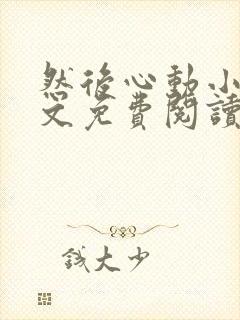 然後心動小
文免費閱讀
錢大少